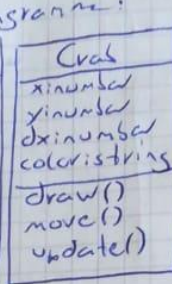 Crab
x:number
y:number
dx:number
color:string
draw()
move()
update()